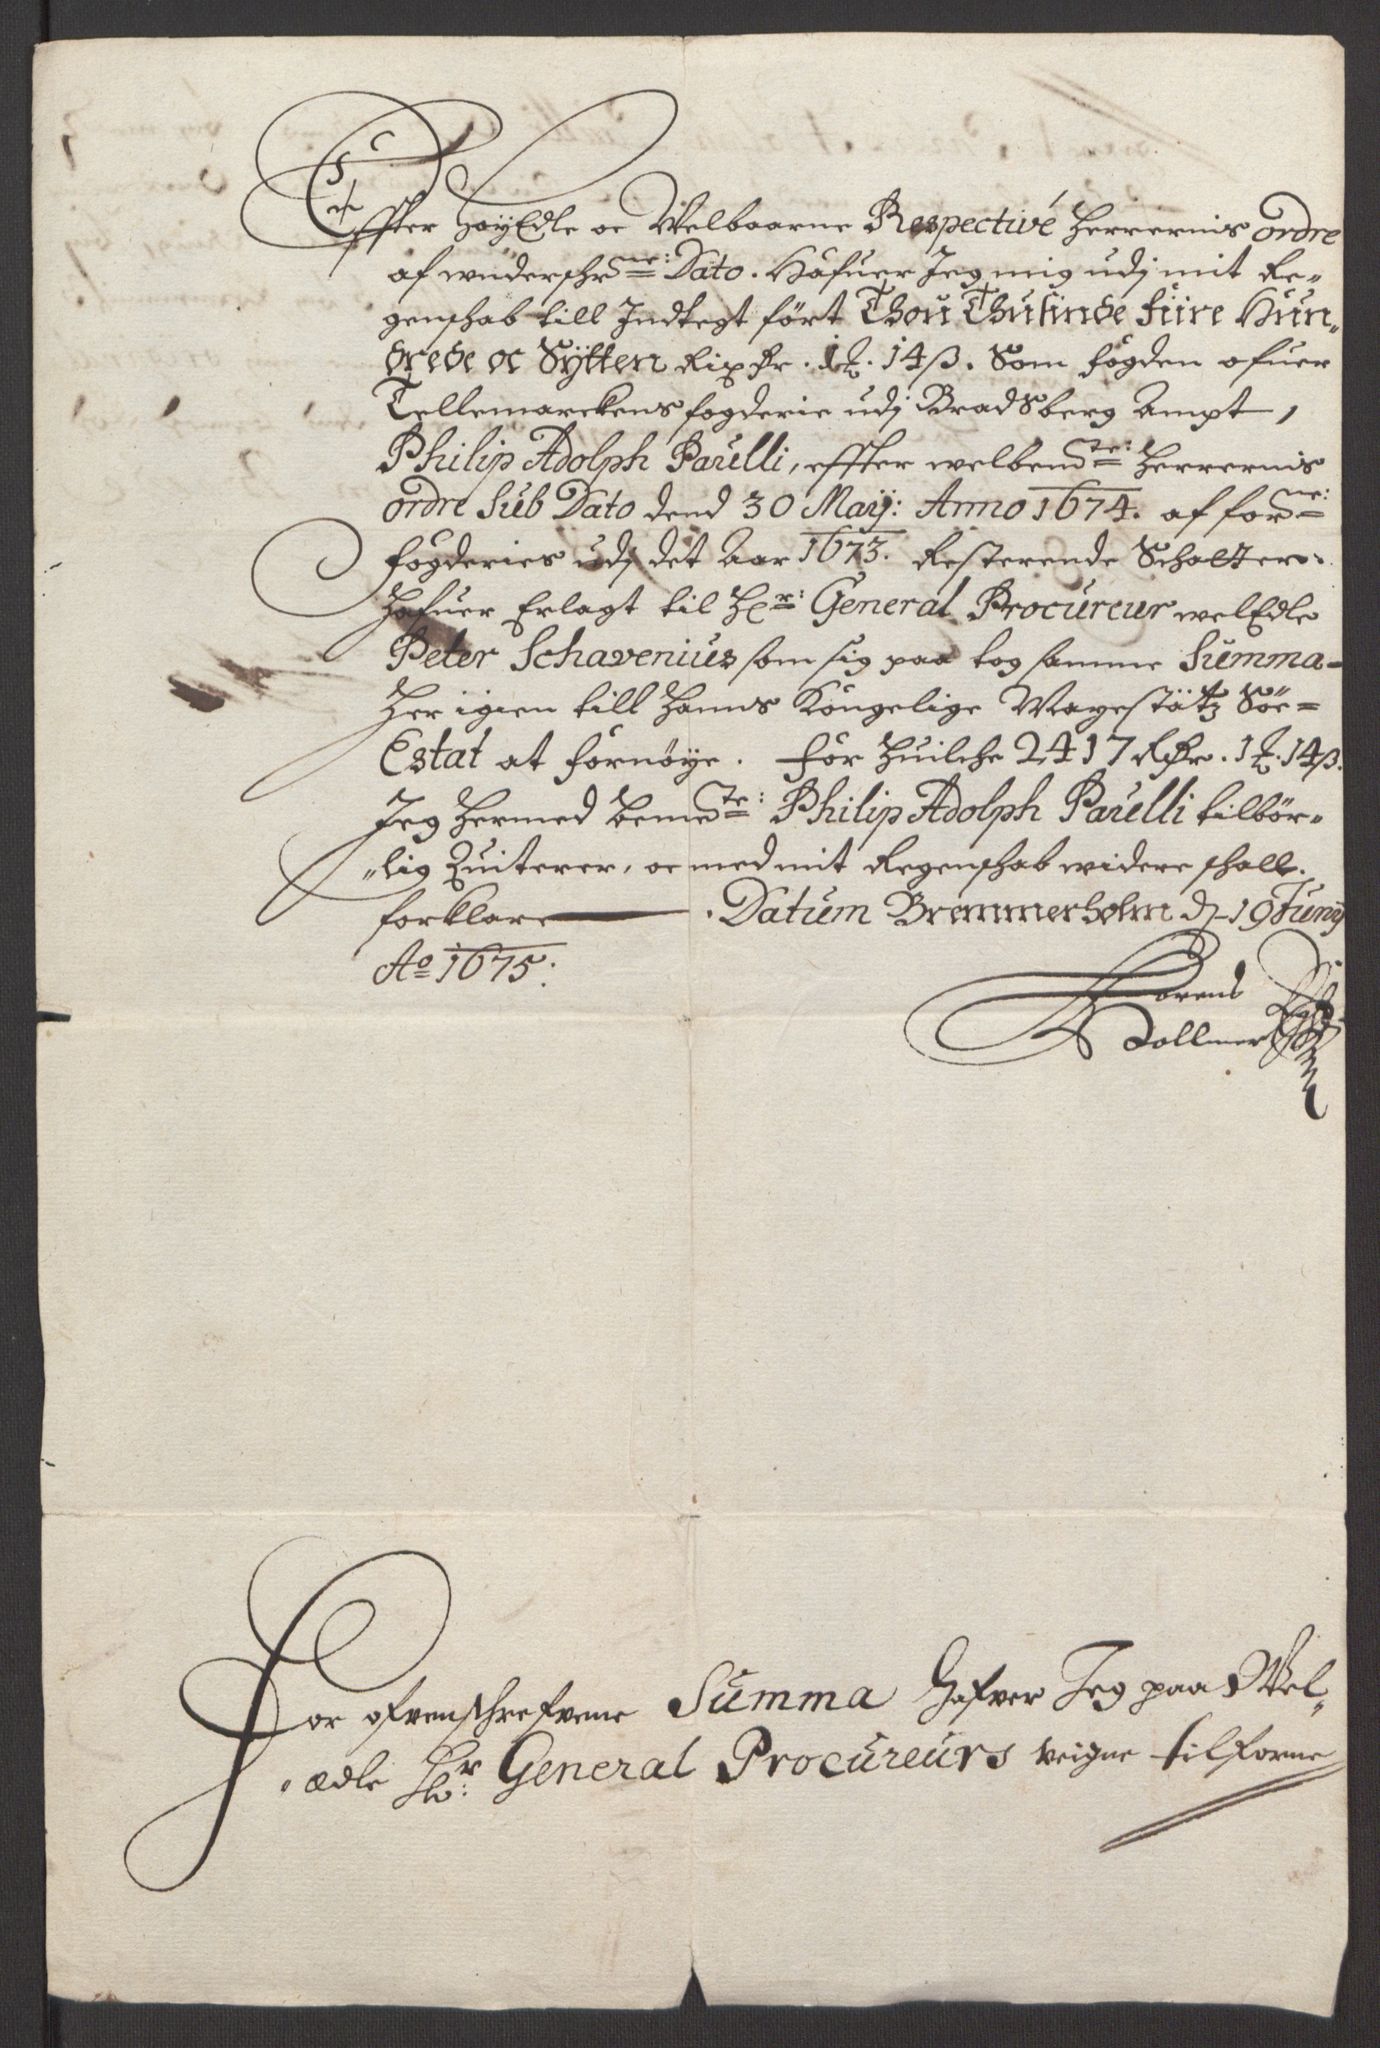 Effter HøyEdle oc Welbaarne Respectivé Herrernis ordre
af underschr:ne Dato. Hafuer Jeg mig udj mit Re=
genschab till Indtegt ført Thou Thusinde fiire Hun=
drede oc Sÿtten Rix Dr. 1 ℔. 14 ß. Som fogden ofuer
Tellemarckens fogderie udj Bradsberg Ampt,
Philip Adolph Parelli, effter welbem:te Herrernis
ordre Sub Dato dend 30 Maÿ: Anno 1674. af for:ne
fogderies udj det Aar 1673. Resterende Schatter
Hafuer Erlagt til Hr: General Procureur welEdle
Peter Schavenius som sig paa tog samme Summa
Her igien till Hanns Kongelige Mayestätz Söe=
Estat at fornøye. for Huilche 2417 Rdr. 1 ℔. 14 ß.
Jeg Hermed bem:te Philip Adolph Parelli tilbör=
lig Quiterer, oc med mit Regenschab widere schall
forklare. Datum Bremmerholm d. 19 Junÿ
Ao 1675.
Lorens
Tollner
For ofvenschrefvene Summa Hafver Jeg paa Wel=
ædle Hr: General Procureurs veigne tilforne